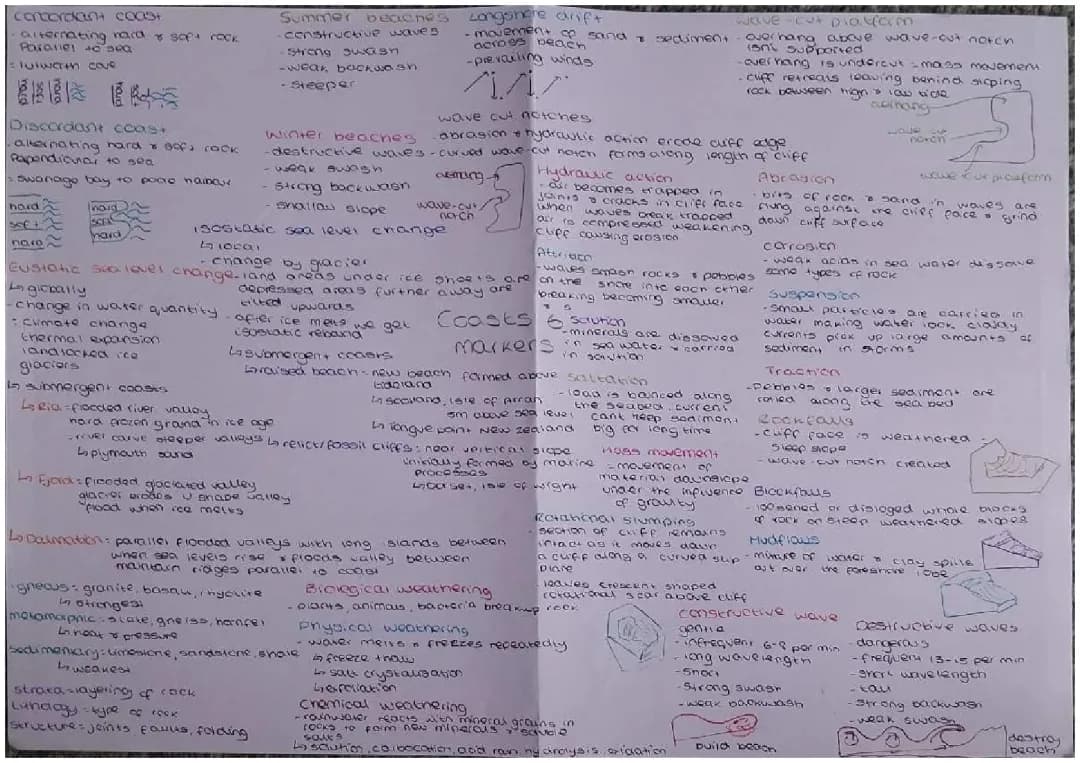 concordant coast
- alternating hard & soft rock
Parallel to sea
= lulworth cove
hard
soft
hard
hard
soft
hard
Discordant coast
- alternating hard & soft rock
Papendicular to sea
= swanage bay to poole harbour
hard
soft
hard
hard
soft
hard
Summer beaches
- constructive waves
- strong swash
- weak backwash
- steeper
Winter beaches
- destructive waves
- weak swash
- strong backwash
- shallow slope
Longshore drift
- movement of sand & sediment
across beach
- prevailing winds
wave cut notches
- abrasion & hydraulic action erode cliff edge
- curved wave-cut notch forms along length of cliff
overhang
wave-cut
notch
wave-cut platform
- overhang above wave-cut notch
isn't supported
- overhang is undercut = mass movement
- cliff retreats leaving behind sloping
rock between high & low tide
overhang
wave-cut
notch
wave cut platform
Isostatic sea level change
↳ local
- change by glacier
- land areas under ice sheets are
depressed areas further away are
tilted upwards
- after ice melts we get
isostatic rebound
↳ submergent coasts
↳ raised beach = new beach formed above
tideland
↳ scotland, isle of arran
5m above sea level
↳ Tongue point New Zealand
↳ relict/fossil cliffs = near vertical slope
initially formed by marine
processes
↳ Dorset, isle of wight
Eustatic sea level change
↳ globally
- change in water quantity
= climate change
thermal expansion
landlocked ice
glaciers
↳ submergent coasts
↳ Ria = flooded river valley
hard frozen ground in ice age
- river carve steeper valleys
↳ plymouth sound
↳ Fjord = flooded glaciated valley
glacier erodes U shape valley
flood when ice melts
↳ Dalmation = parallel flooded valleys with long islands between
when sea levels rise & floods valley between
mountain ridges parallel to coast
Coasts 6
markers
Hydraulic action
- air becomes trapped in
joints & cracks in cliff face
when waves break trapped
air is compressed weakening
cliff causing erosion
Attrition
- waves smash rocks & pebbles
on the shore into each other
breaking becoming smaller
Abrasion
- bits of rock & sand in waves are
flung against the cliff face & grind
down cliff surface
Corrosion
- weak acids in sea water dissolve
some types of rock
Suspension
- small particles are carried in
water making water look cloudy
currents pick up large amounts of
sediment in storms
solution
- minerals are dissolved
in sea water & carried
in solution
Traction
- pebbles & larger sediment are
rolled along the sea bed
saltation
- load is bounced along
the seabed, current
cant keep sediment
big for long time
Rockfalls
- cliff face is weathered
steep slope
- wave-cut notch created
Mass movement
- movement of
material downslope
under the influence
of gravity
Blockfalls
- loosened or dislodged whole blocks
of rock on steep weathered slopes
Rotational slumping
- section of cliff remains
intact as it moves down
a cliff along a curved slip
plane
- leaves crescent shaped
rotational scar above cliff
Mudflows
- mixture of water & clay spills
out over the foreshore
Igneous = granite, basalt, rhyolite
↳ strongest
metamorphic = slate, gneiss, hornfel
↳ heat & pressure
Sedimentary = limestone, sandstone, shale
↳ weakest
strata = layering of rock
Lithology = type of rock
structure = joints, faults, folding
Biological weathering
- plants, animals, bacteria break up rock
Physical weathering
- water melts & freezes repeatedly
↳ freeze thaw
↳ salt crystalisation
↳ exfoliation
Chemical weathering
- rainwater reacts with mineral grains in
rocks to form new minerals & soluble
salts
↳ solution, carbonation, acid rain, hydrolysis, oxidation
constructive wave
- gentle
- infrequent 6-8 per min
- long wavelength
- short
- strong swash
- weak backwash
build beach
Destructive waves
- dangerous
- frequent 13-15 per min
- short wavelength
- tall
- strong backwash
- weak swash
destroy
beach